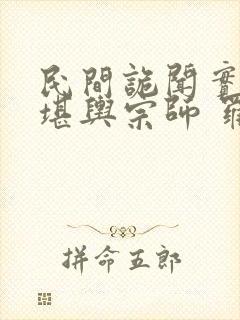 民間詭聞實
堪輿宗師 羅
拼命五郎